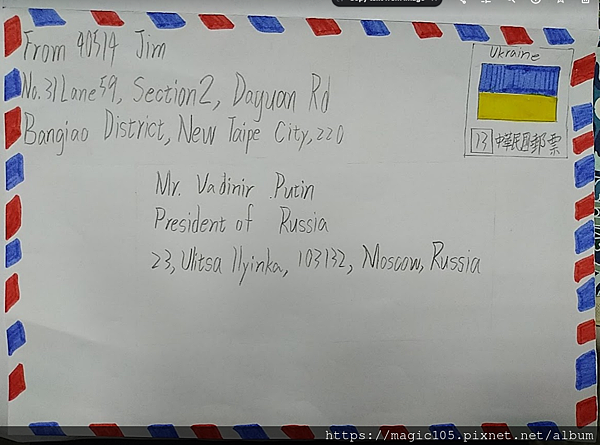 From 40514 Jim
No.31 Lane 59, Section 2, Dayuan Rd
Banqiao District, New Taipe City, 220
Ukraine
13 中華民國郵票
Mr. Vadinir Putin
President of Russia
23, Ulitsa Ilyinka, 103132, Moscow, Russia
https://magic105.pixnet.net/album